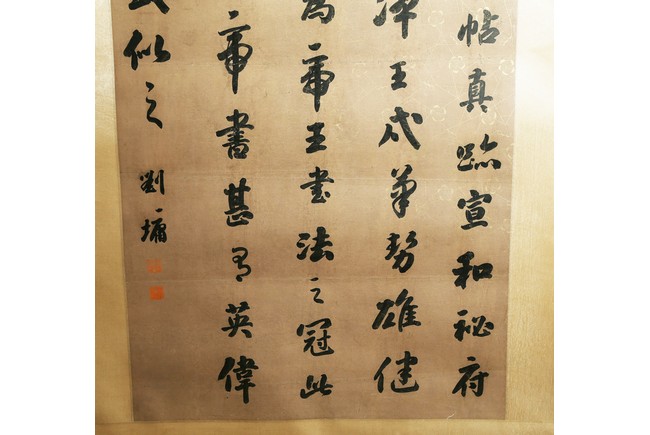 帖真跡宣和秘府
王代筆勢雄健
為帝王書法之冠此
帝書甚有英偉
似之
劉墉